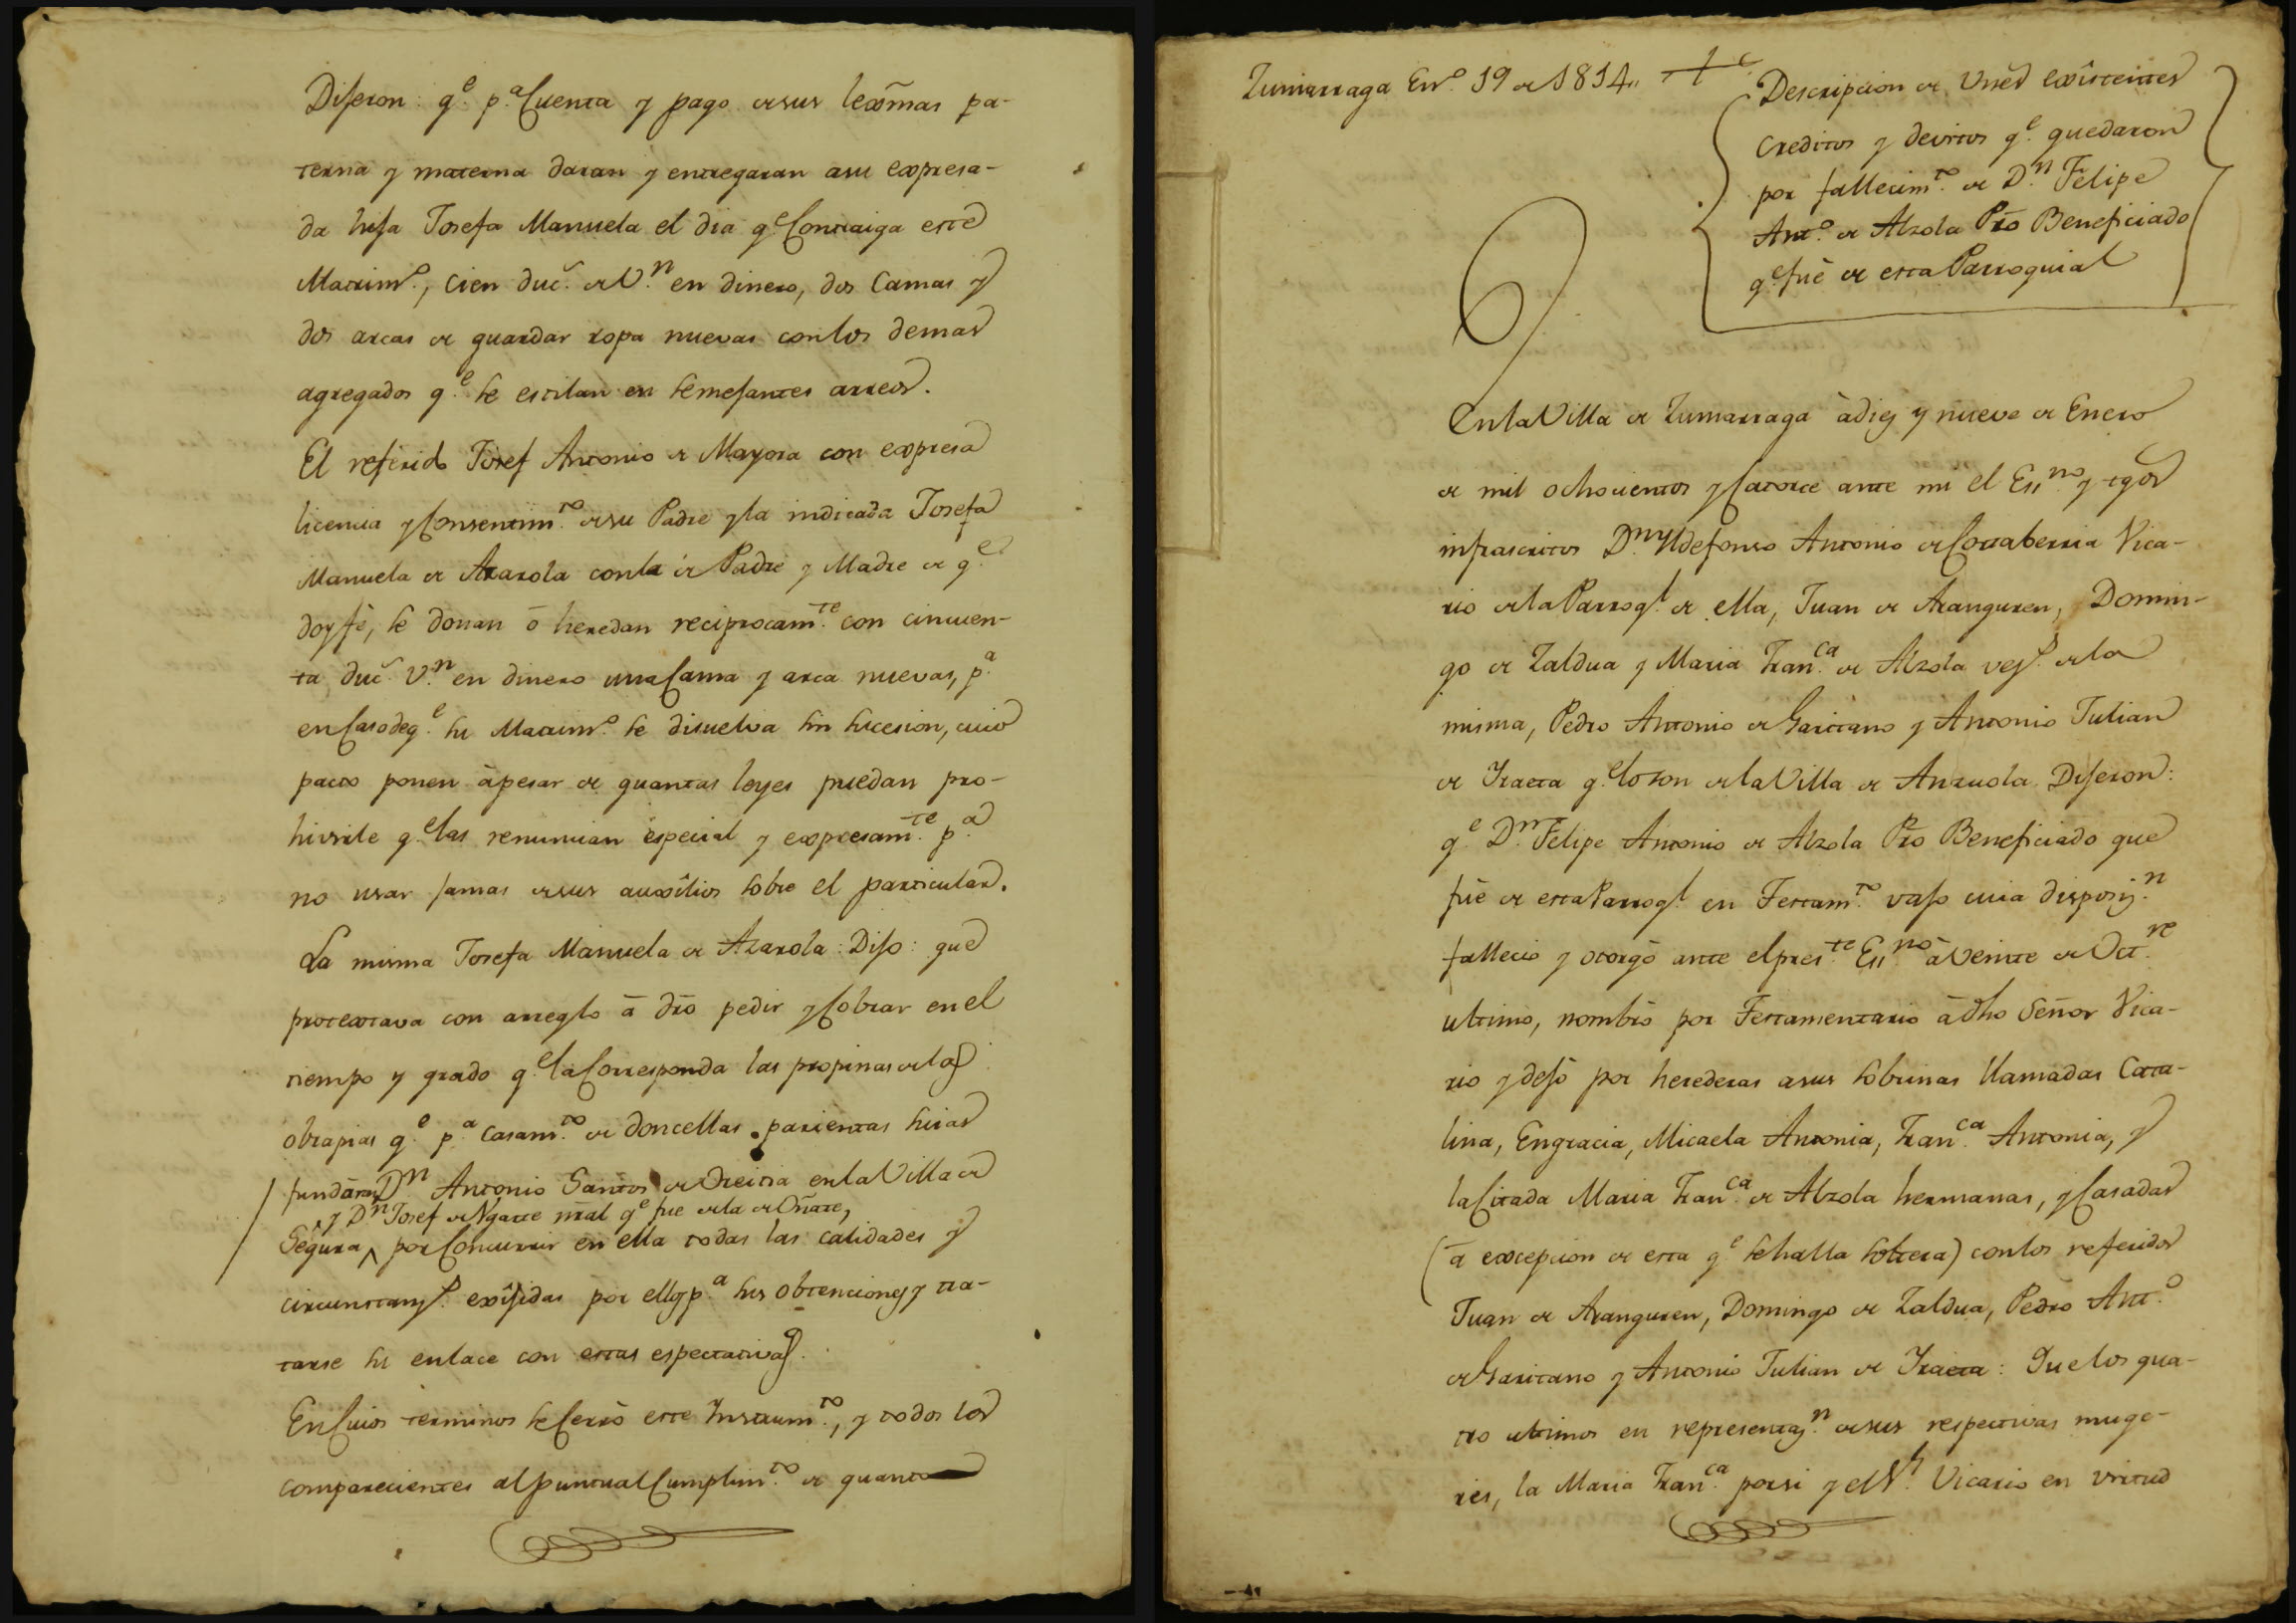 Dijeron: qe. pa. Cuenta y pago de sus lexmas pa-
terna y materna daran y entregaran a su expresa-
da hija Josefa Manuela el dia qe Contraiga este
Matrimo., cien duc. de Vn. en dinero, dos Camas y
dos arcas de guardar ropa nuevas con los demas
agregados qe. se estilan en semejantes arreos.
El referido Josef Antonio de Mayora con expresa
licencia y Consentimto. de su Padre y la indicada Josefa
Manuela de Azarola con la de Padre y Madre de qe.
doy fè, se donan ò heredan reciprocamte. con cincuen-
ta duc. Vn. en dinero una Cama y arca nuevas, pa.
en Caso de qe. su Matrimo. se disuelva sin sucesion, cuio
pacto ponen à pesar de quantas leyes puedan pro-
hivirle qe. las renuncian especial y expresamte. pa.
no usar jamas de sus auxîlios sobre el particular.
La misma Josefa Manuela de Azarola: Dijo: que
protextava con arreglo â dro pedir y Cobrar en el
tiempo y grado qe. la Corresponda las propinas de las
obrapias qe. pa. casamto. de doncellas parientas suias
fundaron Dn. Antonio Santos de Oreitia en la Villa de
y Dn Josef de Ugarte nral qe fue de la de Oñate,
Segura, por Concurrir en ella todas las calidades y
circunstans. exîjidas por ellos pa. sus obtenciones y tra-
tarse su enlace con estas espectativas.
En Cuios terminos se Cerrò este Instrumto., y todos los
comparecientes al puntual Cumplimto. de quanto
Zumarraga Eno. 19 de 1814
Descripcion de Vnes exîstentes
creditos y devitos qe. quedaron
por fallecimto. de Dn. Felipe
Anto. de Alzola Pro Beneficiado
qe fuè de esta Parroquial
En la Villa de Zumarraga à diez y nueve de Enero
de mil ochocientos y Catorce ante mi el Essno. y tgos
infrascritos Dn. Yldefonso Antonio de Cortaberria Vica-
rio de la Parroql. de ella, Juan de Aranguren, Domin-
go de Zaldua y Maria Franca. de Alzola vezs. de la
misma, Pedro Antonio de Garitano y Antonio Julian
de Yraeta qe. lo son de la Villa de Anzuola Dijeron:
qe. Dn. Felipe Antonio de Alzola Pro Beneficiado que
fuè de esta Parroql. en Testamto. vajo cuia disposizn.
fallecio y otorgò ante el preste. Essno. à veinte de Octre.
ultimo, nombrò por Testamentario à dho Señor Vica-
rio y dejò por herederas a sus sobrinas llamadas Cata-
lina, Engracia, Micaela Antonia, Franca. Antonia, y
la Citada Maria Franca. de Alzola hermanas, y Casadas
(à excepcion de esta qe. se halla soltera) con los referidos
Juan de Aranguren, Domingo de Zaldua, Pedro Anto.
de Garitano y Antonio Julian de Yraeta: Que los qua-
tro ultimos en representazn. de sus respectivas muge-
res, la Maria Franca. por si y el Sr. Vicario en virtud